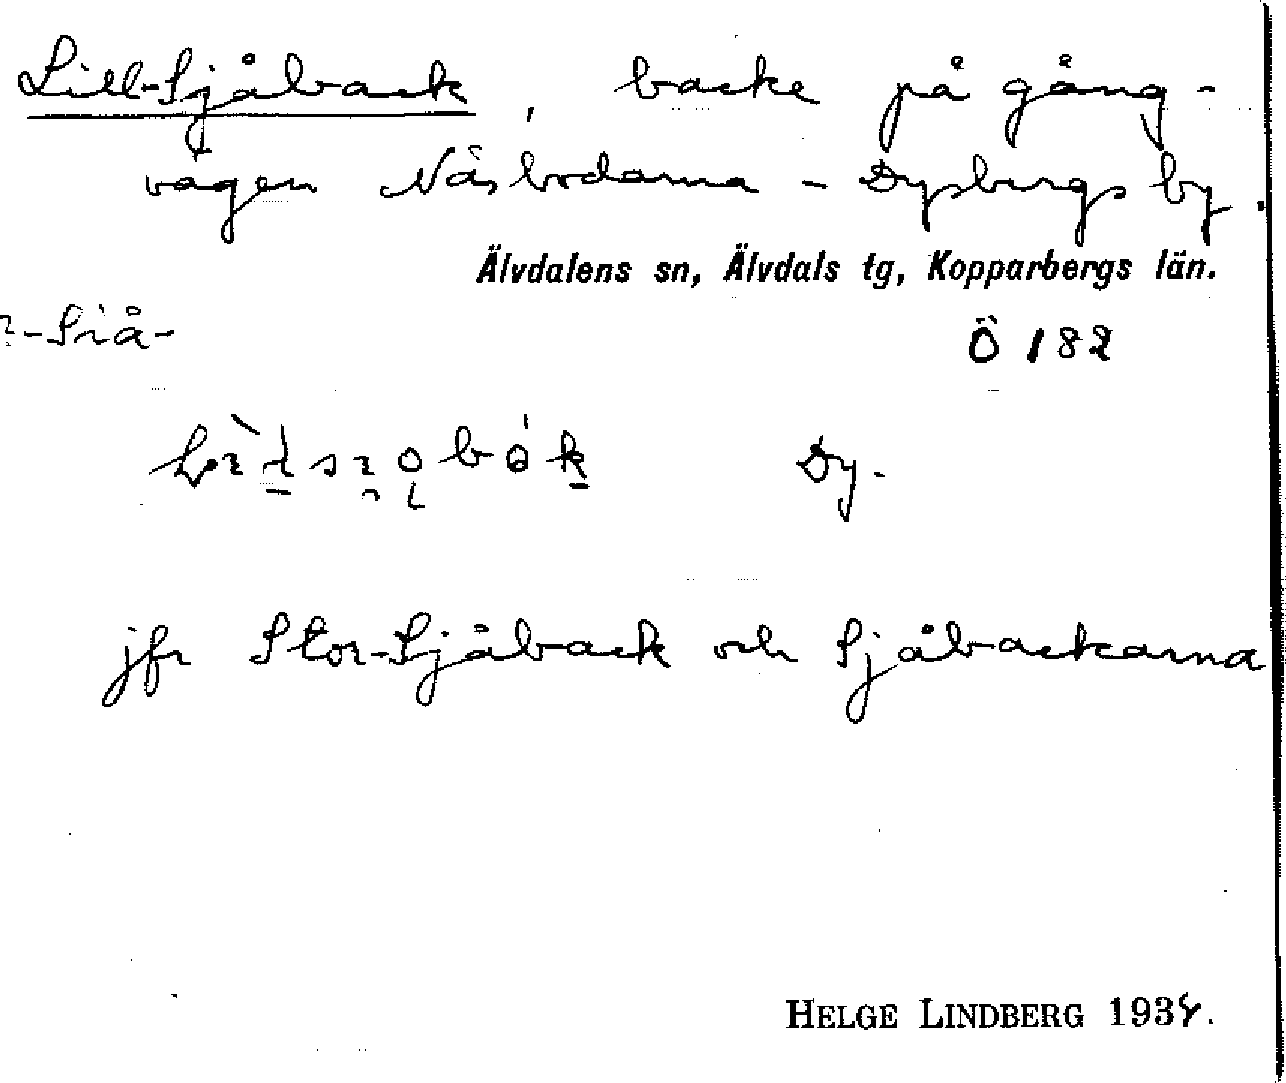 Lill-Sjåback, backe på gång-
vägen Näsbodarna - Dysbergs by.
Älvdalens sn, Älvdals tg, Kopparbergs län.
-Siå-
Ö 182
Dy.
jfr Stor-Sjåback och Sjåbackarna
HELGE LINDBERG 1934.